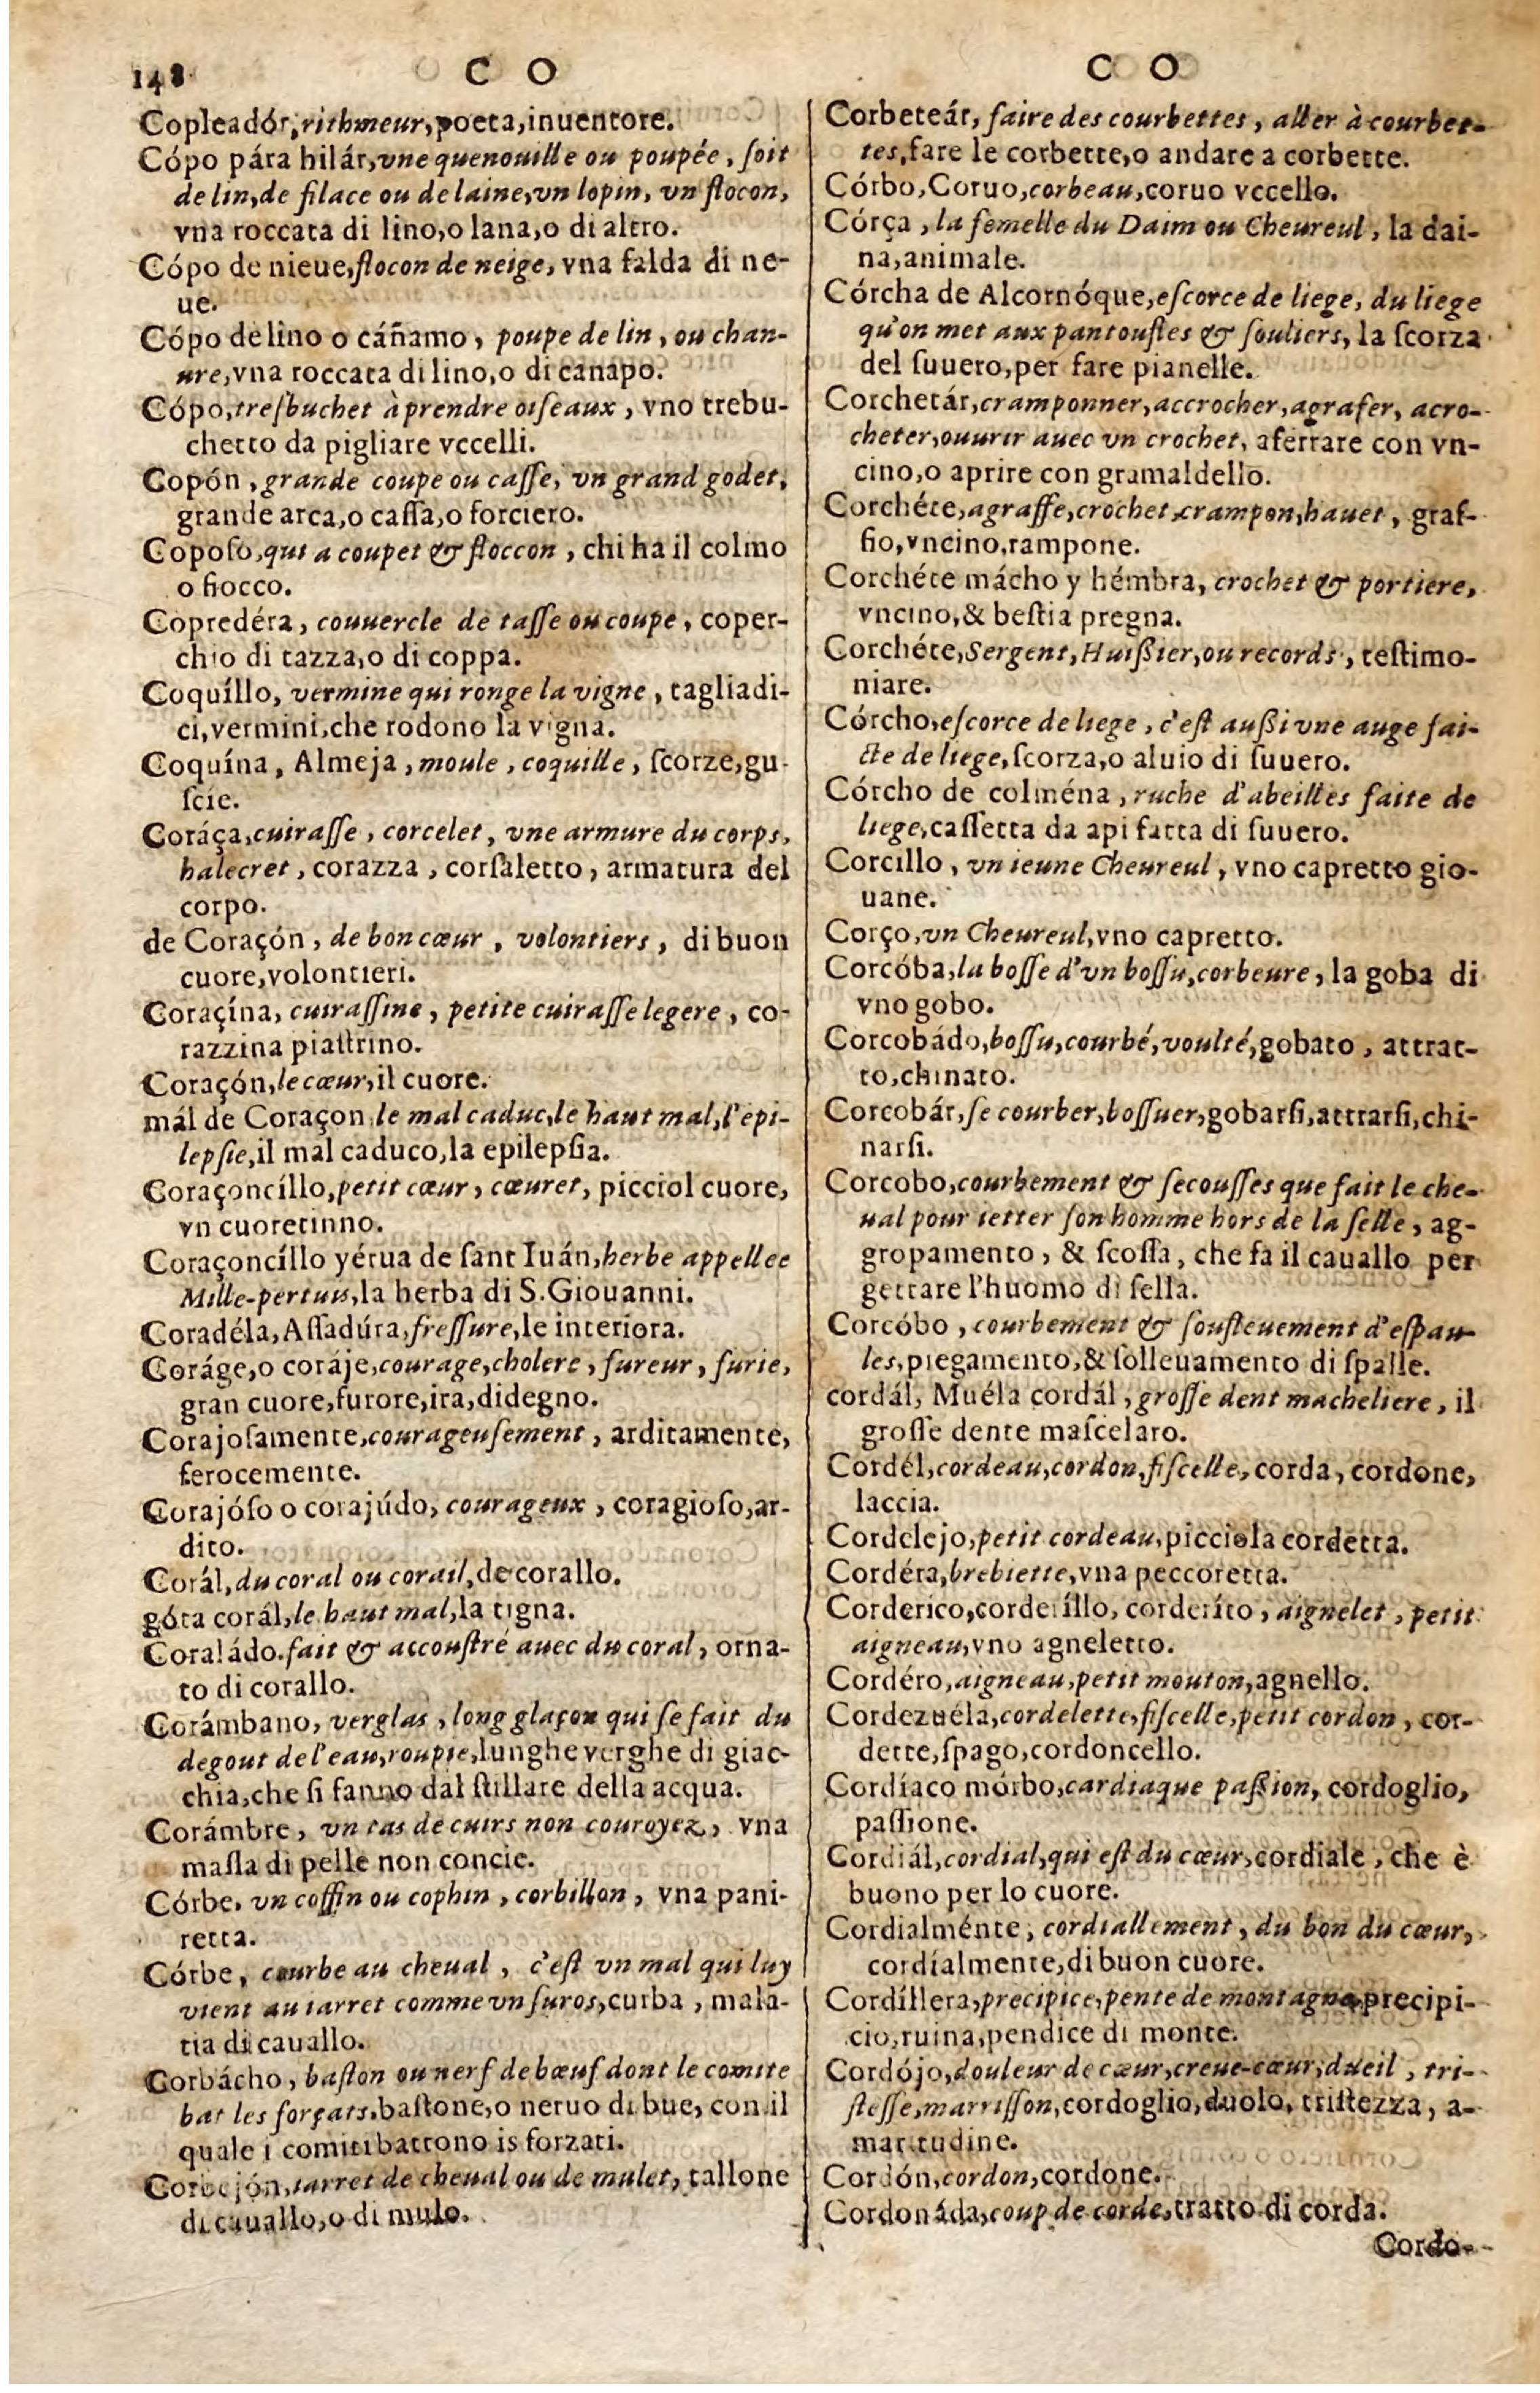 148 C O
Copleadór, rithmeur, poeta, inuentore.
Cópo pára hilár, vne quenouille ou poupée, ſoit
de lin, de filace ou de laine, vn lopin, vn flocon,
vna roccata di lino, o lana, o di altro.
Cópo de nieue, flocon de neige, vna falda di ne-
ue.
Cópo de lino o cáñamo, poupe de lin, ou chan-
ure, vna roccata di lino, o di canapo.
Cópo, treſbuchet à prendre oiſeaux, vno trebu-
chetto da pigliare vccelli.
Copón, grande coupe ou caſſe, vn grand godet,
grande arca, o caſſa, o forciero.
Copoſo, qui a coupet & floccon, chi ha il colmo
o fiocco.
Copredéra, couuercle de taſſe ou coupe, coper-
chio di tazza, o di coppa.
Coquíllo, vermine qui ronge la vigne, tagliadi-
ci, vermini, che rodono la vigna.
Coquína, Almeja, moule, coquille, ſcorze, gu-
ſcie.
Coráça, cuiraſſe, corcelet, vne armure du corps,
halecret, corazza, corſaletto, armatura del
corpo.
de Coraçón, de bon cœur, volontiers, di buon
cuore, volontieri.
Coraçína, cuiraſſine, petite cuiraſſe legere, co-
razzina piattrino.
Coraçón, le cœur, il cuore.
mál de Coraçon, le mal caduc, le haut mal, l'epi-
lepſie, il mal caduco, la epilepſia.
Coraçoncíllo, petit cœur, cœuret, picciol cuore,
vn cuoretinno.
Coraçoncíllo yérua de ſant Iuán, herbe appellee
Mille-pertuis, la herba di S. Giouanni.
Coradéla, Aſſadúra, freſſure, le interiora.
Coráge, o coráje, courage, cholere, fureur, furie,
gran cuore, furore, ira, didegno.
Corajoſamente, courageuſement, arditamente,
ferocemente.
Corajóſo o corajúdo, courageux, coragioſo, ar-
dito.
Corál, du coral ou corail, de corallo.
góta corál, le haut mal, la tigna.
Coraládo. fait & accouſtré auec du coral, orna-
to di corallo.
Corámbano, verglas, long glaçon qui ſe fait du
degout de l'eau, roupie, lunghe verghe di giac-
chia, che ſi fanno dal ſtillare della acqua.
Corámbre, vn tas de cuirs non couroyez, vna
maſſa di pelle non concie.
Córbe, vn coffin ou cophin, corbillon, vna pani-
retta.
Córbe, courbe au cheual, c'eſt vn mal qui luy
vient au iarret comme vn ſuros, curba, mala-
tia di cauallo.
Corbácho, baſton ou nerf de bœuf dont le comite
bat les forçats, baſtone, o neruo di bue, con il
quale i comiti battono is forzati.
Corbejón, iarret de cheual ou de mulet, tallone
di cauallo, o di mulo.
C O
Corbeteár, faire des courbettes, aller à courbet-
tes, fare le corbette, o andare a corbette.
Córbo, Coruo, corbeau, coruo vccello.
Córça, la femelle du Daim ou Cheureul, la dai-
na, animale.
Córcha de Alcornóque, eſcorce de liege, du liege
qu'on met aux pantoufles & ſouliers, la ſcorza
del ſuuero, per fare pianelle.
Corchetár, cramponner, accrocher, agrafer, acro-
cheter, ouurir auec vn crochet, aferrare con vn-
cino, o aprire con gramaldello.
Corchéte, agraffe, crochet, crampon, hauet, graf-
fio, vncino, rampone.
Corchéte mácho y hémbra, crochet & portiere,
vncino, & beſtia pregna.
Corchéte, Sergent, Huißier, ou records, teſtimo-
niare.
Córcho, eſcorce de liege, c'eſt außi vne auge fai-
cte de liege, ſcorza, o aluio di ſuuero.
Córcho de colména, ruche d'abeilles faite de
liege, caſſetta da api fatta di ſuuero.
Corcillo, vn ieune Cheureul, vno capretto gio-
uane.
Corço, vn Cheureul, vno capretto.
Corcóba, la boſſe d'vn boſſu, corbeure, la goba di
vno gobo.
Corcobádo, boſſu, courbé, voulté, gobato, attrat-
to, chinato.
Corcobár, ſe courber, boſſuer, gobarſi, attrarſi, chi-
narſi.
Corcobo, courbement & ſecouſſes que fait le che-
ual pour ietter ſon homme hors de la ſelle, ag-
gropamento, & ſcoſſa, che fa il cauallo per
gettare l'huomo di ſella.
Corcóbo, courbement & ſouſleuement d'eſpau-
les, piegamento, & ſolleuamento di ſpalle.
cordál, Muéla cordál, groſſe dent macheliere, il
groſſe dente maſcelaro.
Cordél, cordeau, cordon, fiſcelle, corda, cordone,
laccia.
Cordelejo, petit cordeau, picciola cordetta.
Cordéra, brebiette, vna peccoretta.
Corderico, corderíllo, corderíto, aignelet, petit
aigneau, vno agneletto.
Cordéro, aigneau, petit mouton, agnello.
Cordezuéla, cordelette, fiſcelle, petit cordon, cor-
dette, ſpago, cordoncello.
Cordíaco mórbo, cardiaque paßion, cordoglio,
paſſione.
Cordiál, cordial, qui eſt du cœur, cordiale, che è
buono per lo cuore.
Cordialménte, cordiallement, du bon du cœur,
cordíalmente, di buon cuore.
Cordíllera, precipice, pente de montagne, precipi-
cio, ruina, pendice di monte.
Cordójo, douleur de cœur, creue-cœur, dueil, tri-
ſteſſe, marriſſon, cordoglio, duolo, triſtezza, a-
maritudine.
Cordón, cordon, cordone.
Cordonáda, coup de corde, tratto di corda.
Cordo-